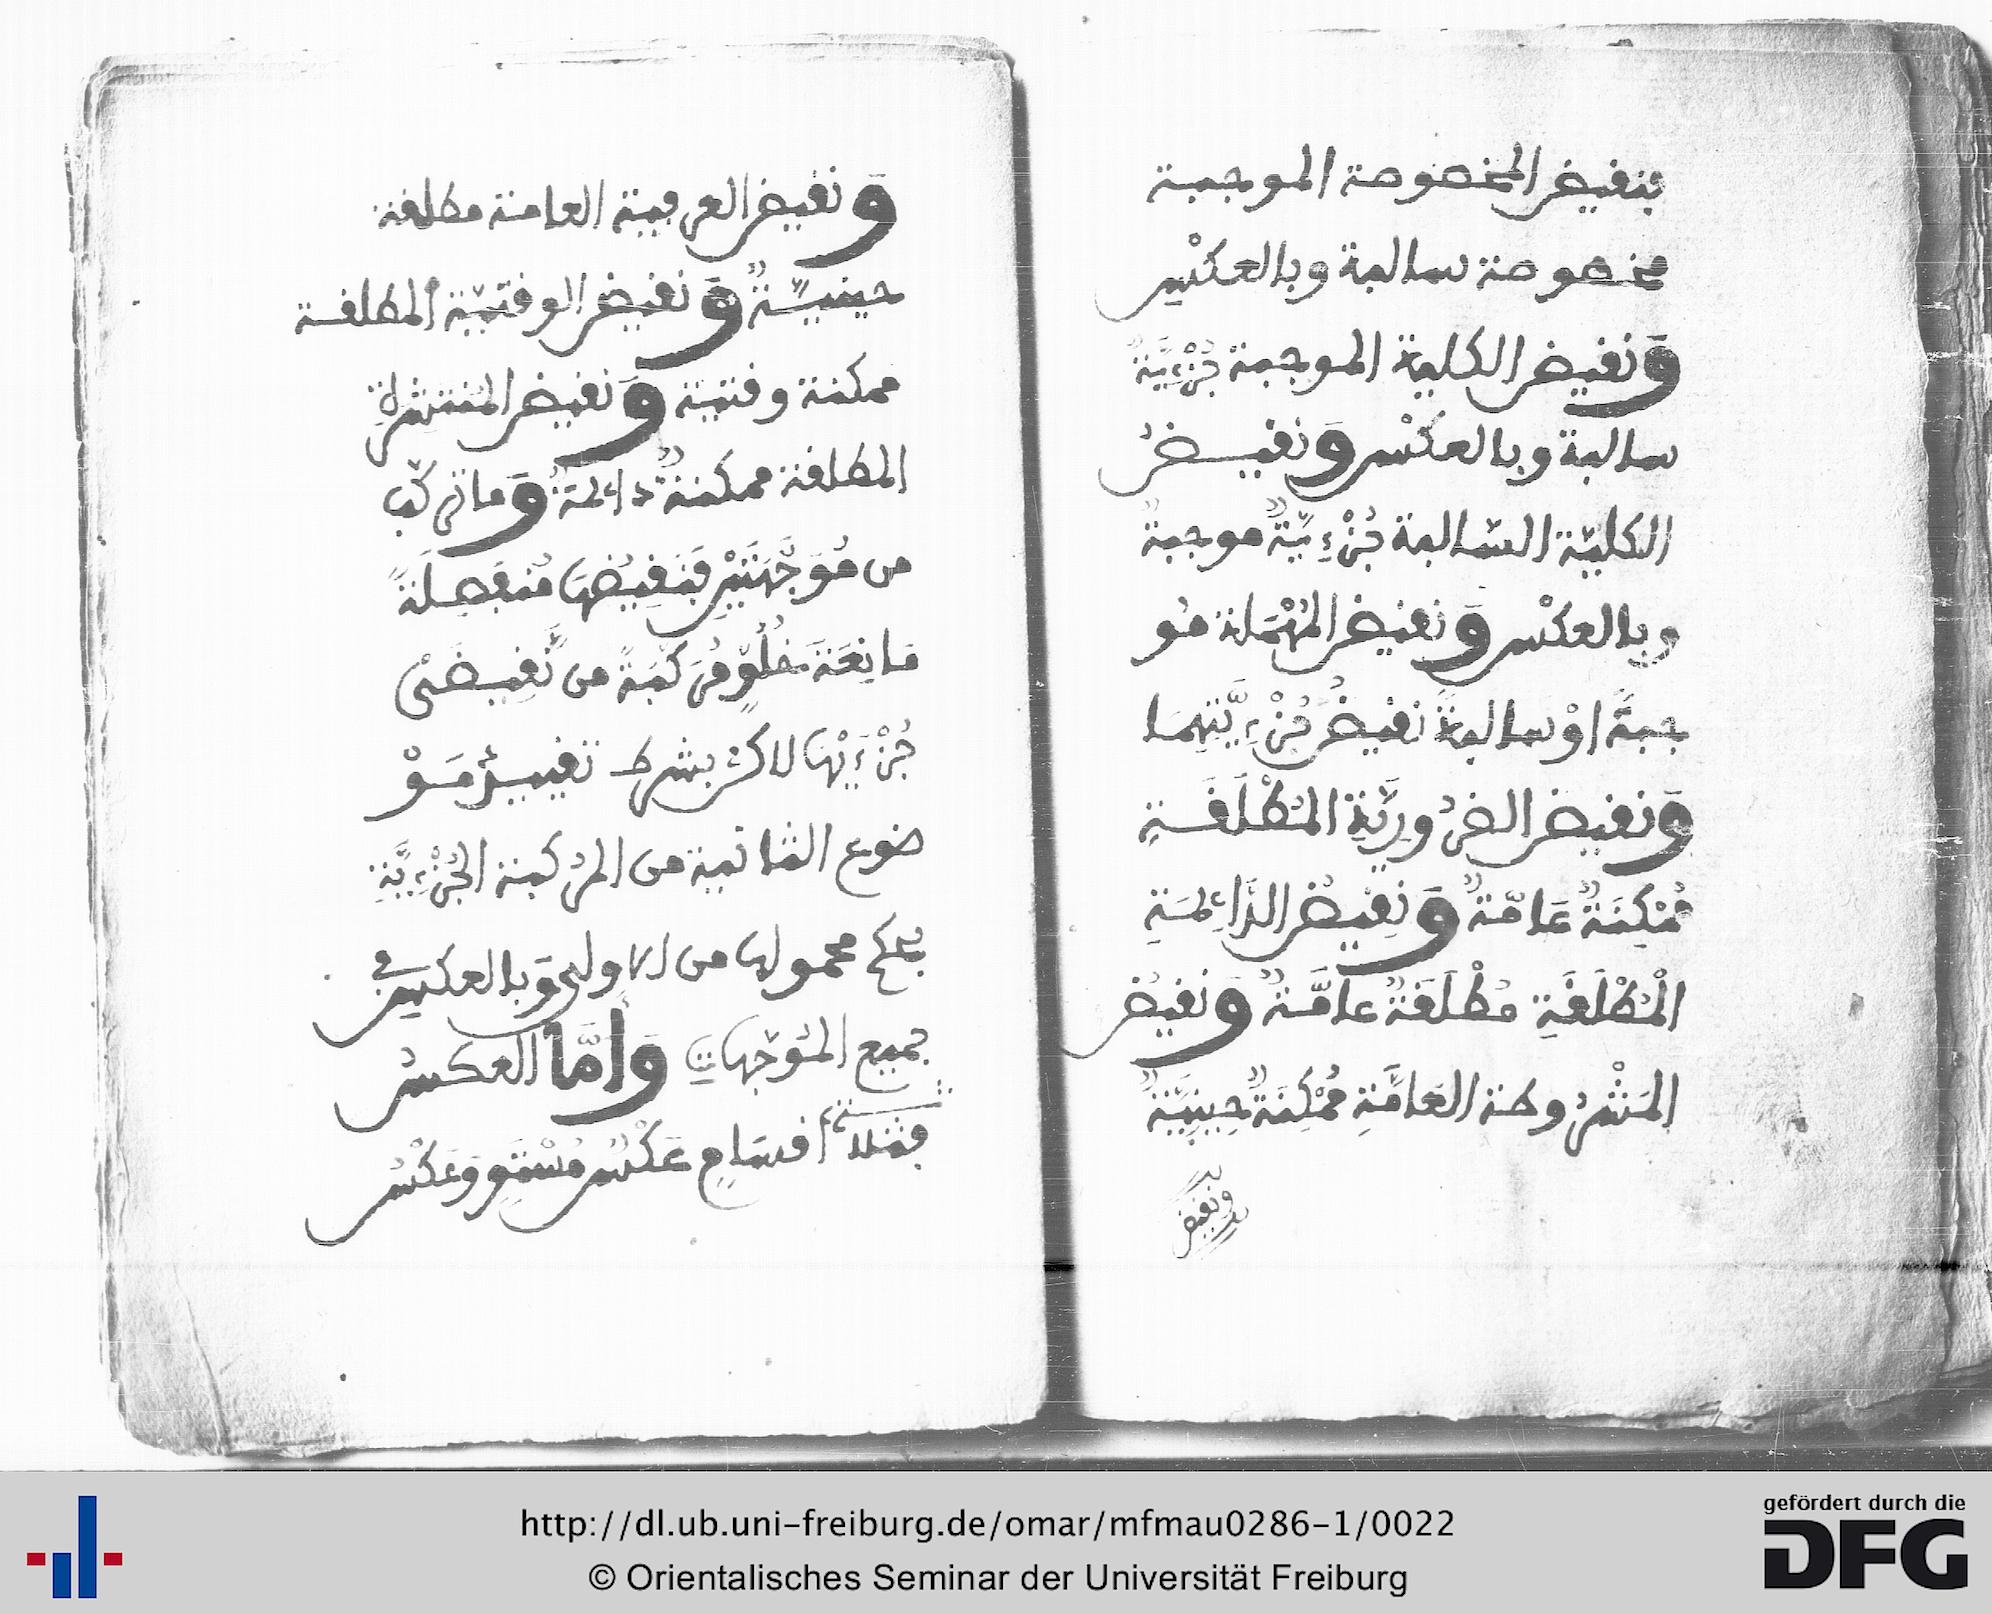 فنقيض المخصوصة الموجبة
مخصوصة سالبة وبالعكس
وَنقيض الكلية الموجبة جُزْءِيَّةٌ
سالبة وبالعكْس وَنقيضُ
الكليّة السّالبة جُزْءِيّةٌ موجبةٌ
وبالعكْس وَنقيض المُهْمَلة مُو
جبةً اوْ سالبةً نقيضُ جُزْءِيَّتِهِمَا
وَنقيض الضرُورِيَّةِ المُطْلَقَةِ
مُمْكِنَةٌ عَامّةٌ وَنقِيضُ الدَّائِمَةِ
الْمُطْلَقَةِ مُطْلَقَةٌ عامَّةٌ وَنقيضُ
المَشْرُوطة العَامَّةِ مُمْكِنَةٌ حِينِيَّةٌ
ونقيض
وَنقيض العرفية العامة مطلقة
حينيّةٌ وَنقيض الوقتيّة المطلقة
ممكنة وقتية وَنقيض المنتشِرةِ
المطلقة ممكنةٌ دائمَةٌ وَما تركّب
من مُوَجَّهَتَيْنِ فَنَقِيضُهَا مُنفَصِلَةٌ
مَانِعَة خُلُوٍّ مُرَكَّبَةً من نَّقِيضَىْ
جُزْءَيْهَا لاكن بشرط تقييدِ مَوْ
ضوع الثانية من المركبة الجُزْءِيَّةِ
بحكم محمولها من الاولى وَبالعكس في
جميع المُوَجّهاتِ وَأمَّا العكسُ
فثلاثة أقسَامٍ عَكْسٌ مُسْتَوٍ وَعَكْسُ
http://dl.ub.uni-freiburg.de/omar/mfmau0286-1/0022
© Orientalisches Seminar der Universität Freiburg
gefördert durch die
DFG